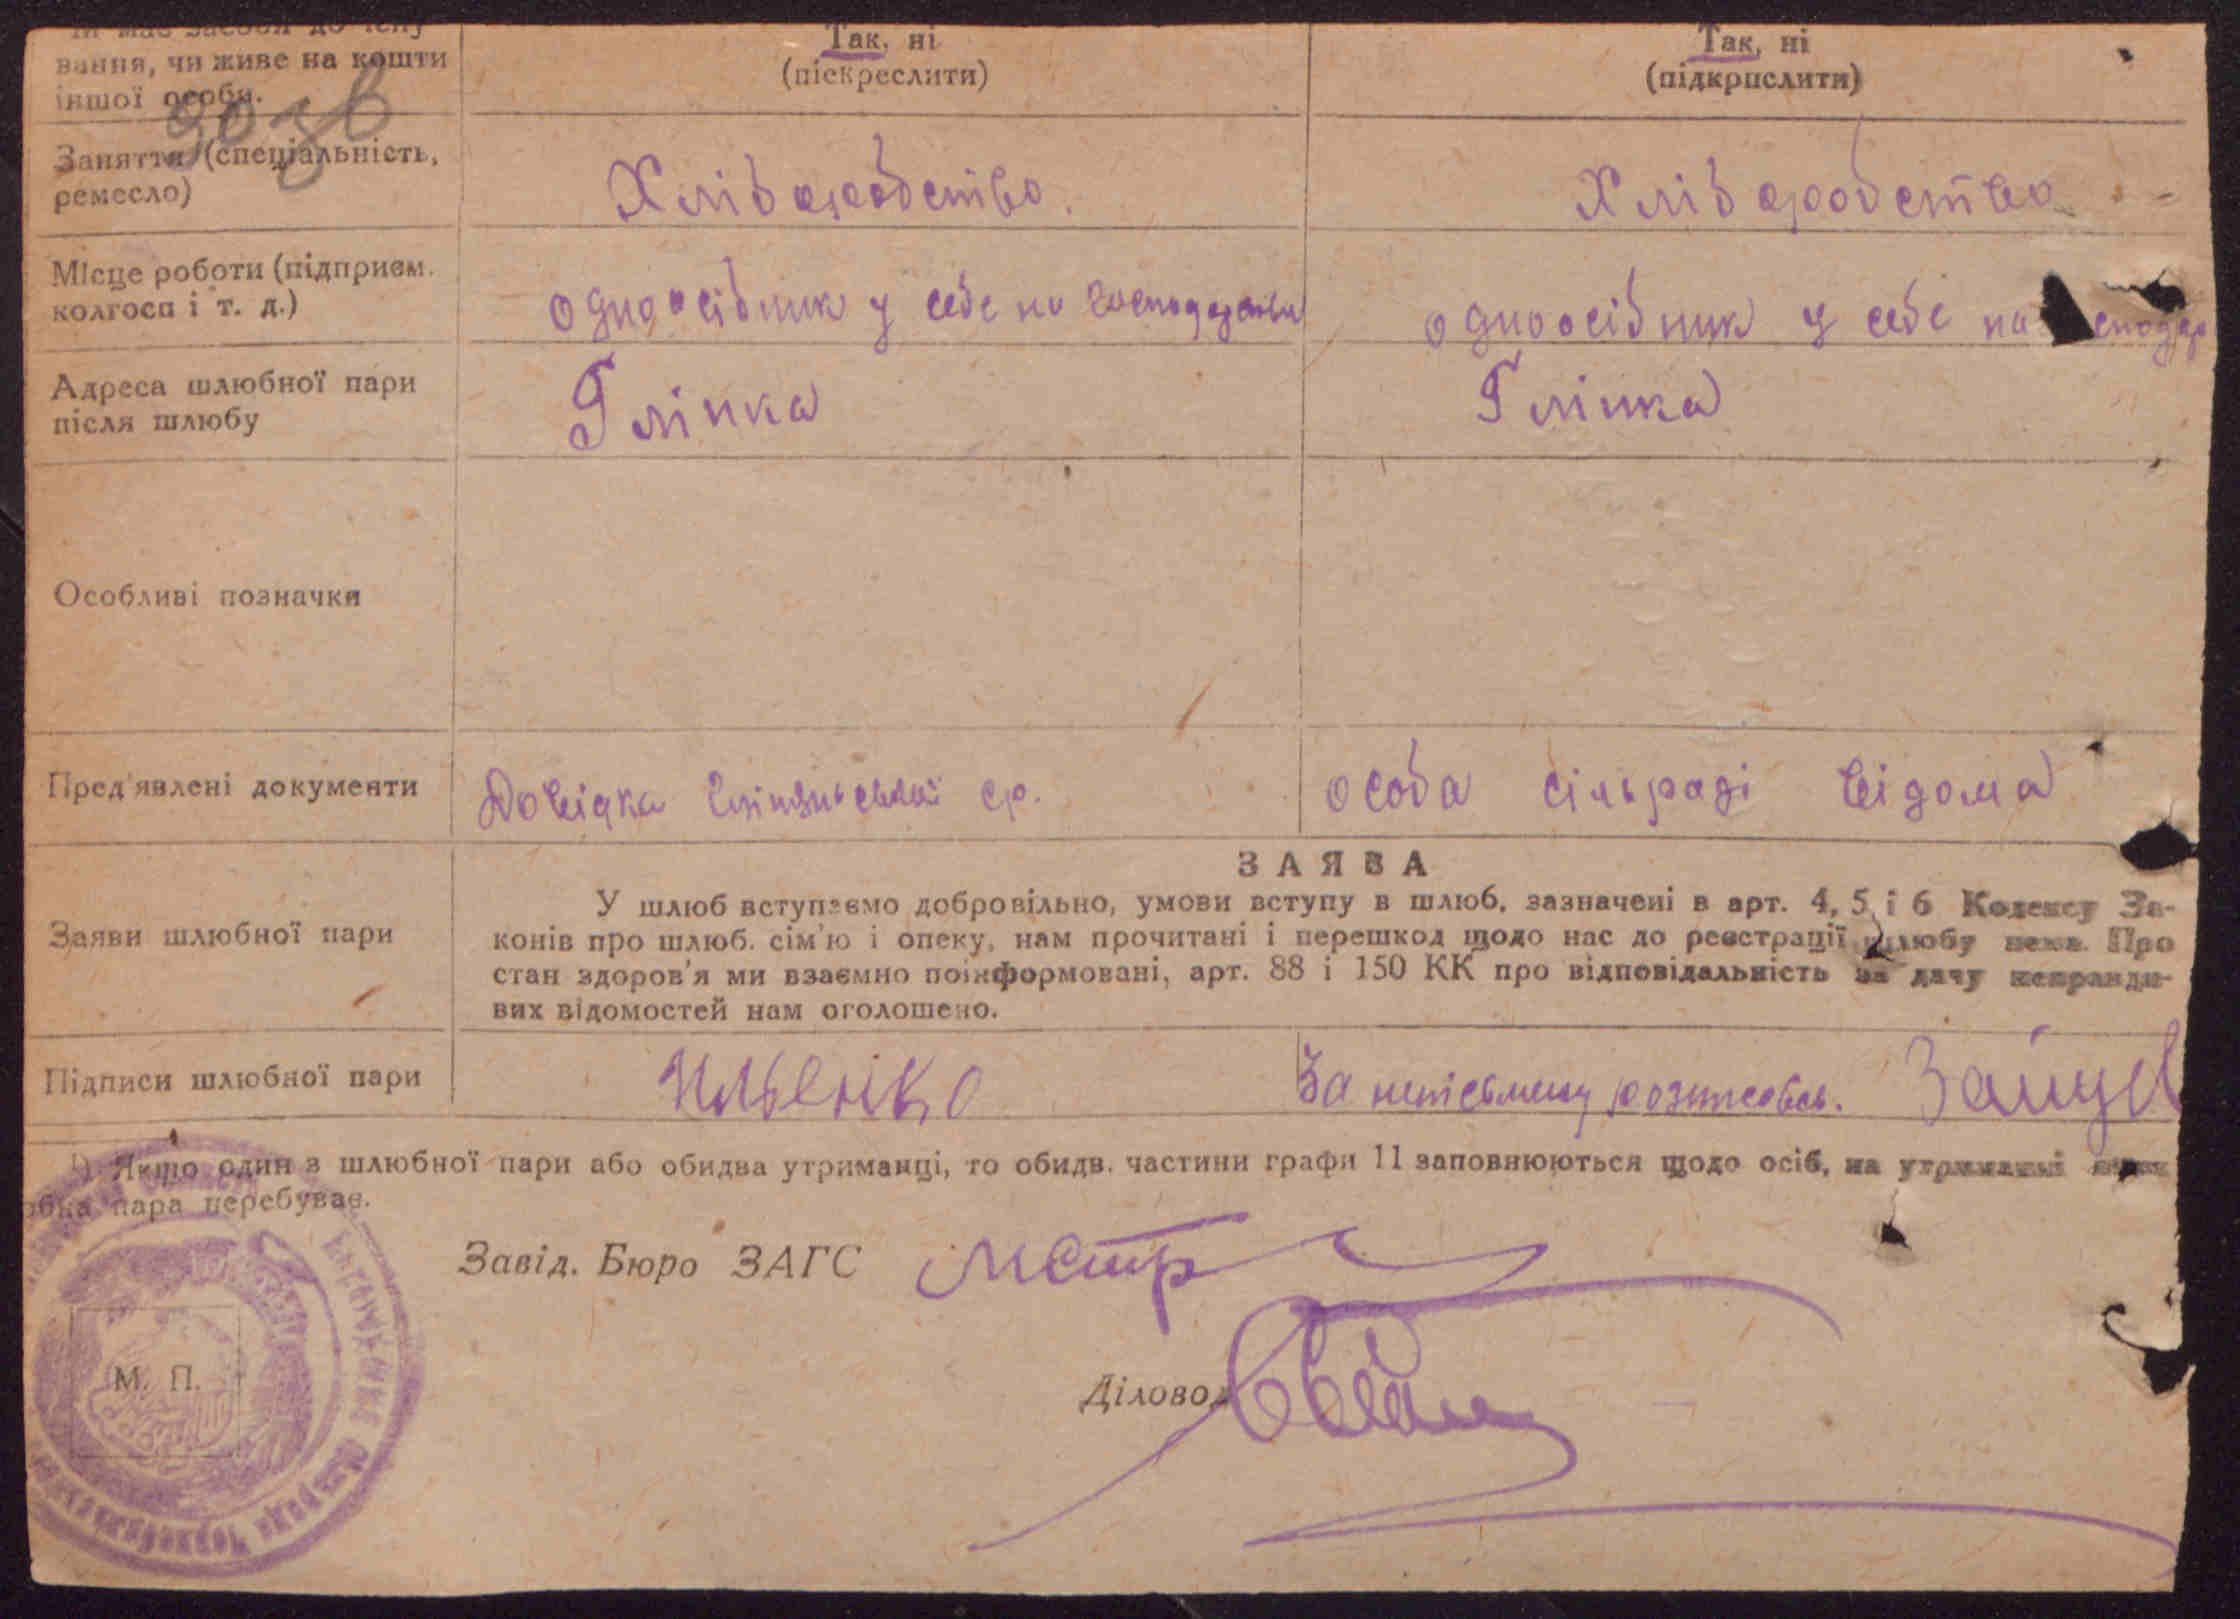 вання, чи живе на кошти
іншої особи.
Так, ні
(піскреслити)
Так, ні
(підкрпслити)
Заняття (спеціальність,
ремесло)
Хліборобство.
Хліборобство
Місце роботи (підприєм.
колгосп і т. д.)
одноосібник у себе на господарстві
одноосібник у себе на
Адреса шлюбної пари
після шлюбу
Глінка
Глінка
Особливі позначки
Пред'явлені документи
Довідка ср.
особа сільраді відома
Заяви шлюбної пари
ЗАЯВА
У шлюб вступаємо добровільно, умови вступу в шлюб, зазначені в арт. 4, 5 і 6 Кодексу За-
конів про шлюб. сім'ю і опеку, нам прочитані і перешкод щодо нас до реєстрації шлюбу нема. Про
стан здоров'я ми взаємно поінформовані, арт. 88 і 150 КК про відповідальність за дачу неправди-
вих відомостей нам оголошено.
Підписи шлюбної пари
Ильенко
За неписьмену
Якщо один з шлюбної пари або обидва утриманці, то обидв. частини графи 11 заповнюються щодо осіб, на утриманні
пара перебуває.
Завід. Бюро ЗАГС
Діловод
М. П.